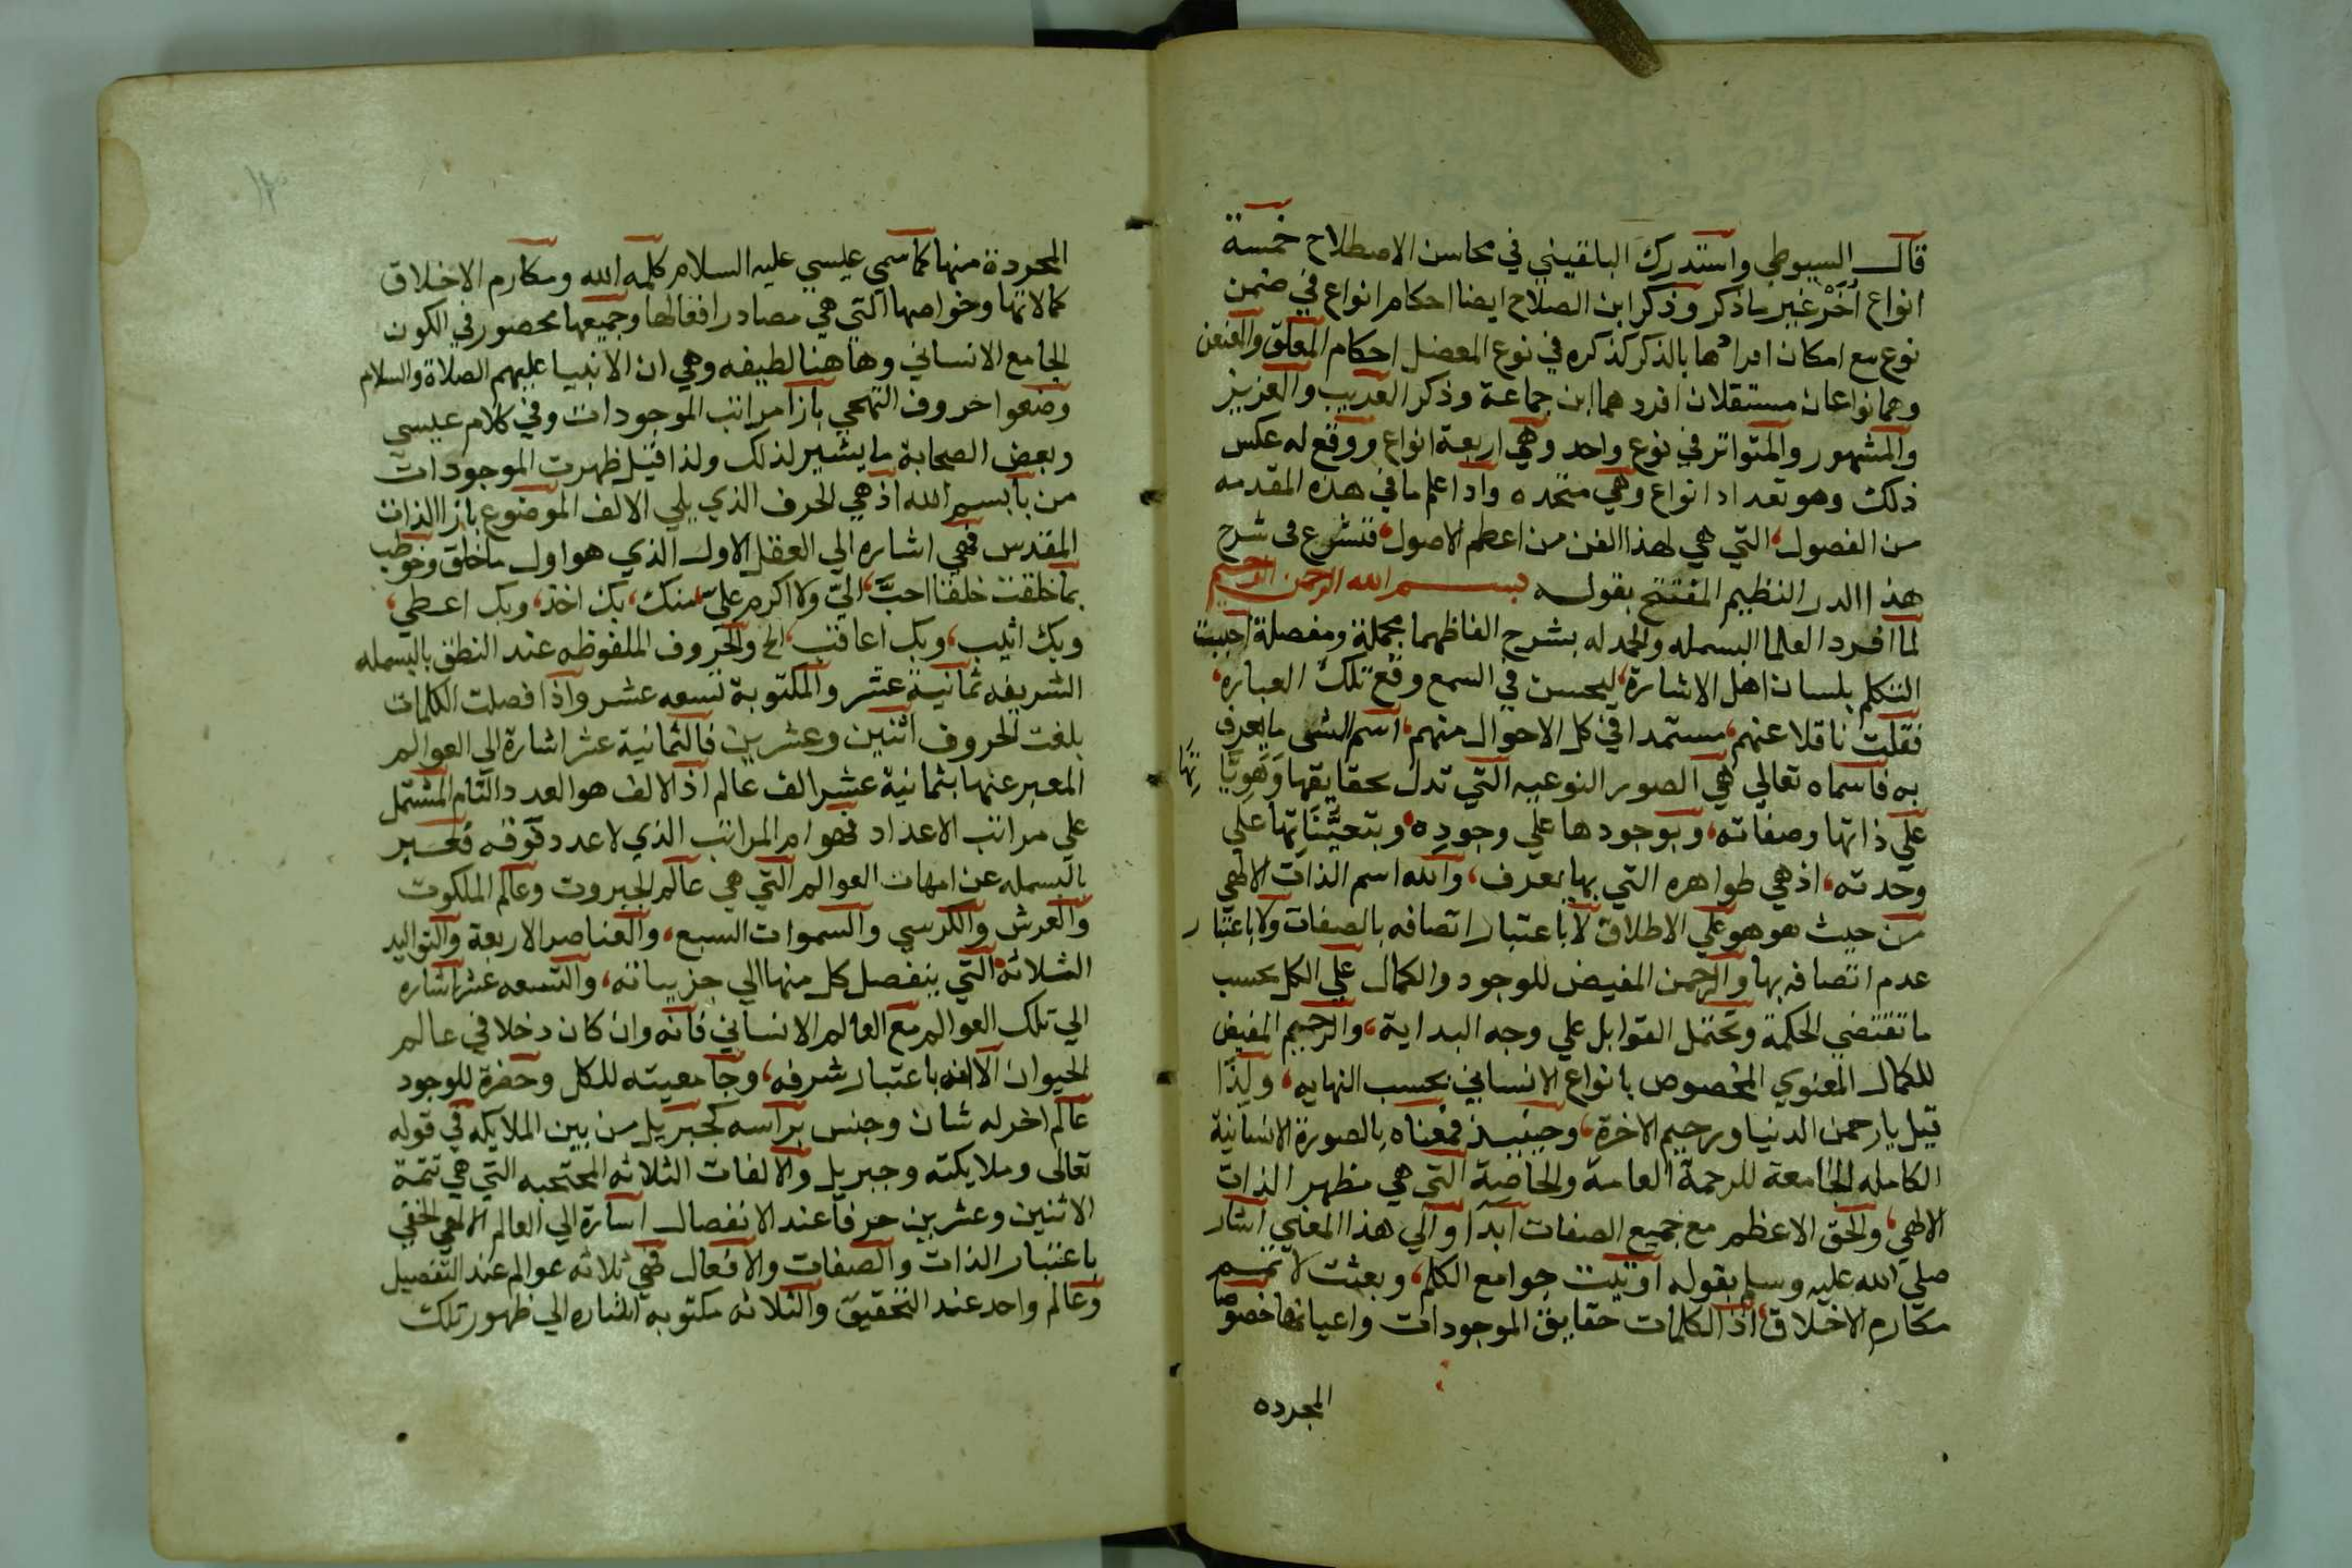 قال السيوطي واستدرك البلقيني في محاسن الاصطلاح خمسة
انواع أُخَرْ غير ما ذكر وذكر ابن الصلاح ايضا احكام انواع في ضمن
نوع مع امكان افرادها بالذكر كذكره في نوع المعضل احكام المعلق والمعنعن
وهما نوعان مستقلان افردهما ابن جماعة وذكر الغريب والعزيز
والمشهور والمتواتر في نوع واحد وهي اربعة انواع ووقع له عكس
ذلك وهو تعداد انواع وهي متحده واذ اعلم ما في هذه المقدمه
من الفصول، التي هي لهذا الفن من اعظم الاصول، فنشرع في شرح
هذا الدر النظيم المفتتح بقوله بسم الله الرحمن الرحيم
لما افرد العلما البسمله والحمدله بشرح الفاظهما مجملة ومفصلة احببت
التكلم بلسان اهل الاشارة، ليحسن في السمع وقع تلك العباره،
فقلت ناقلا عنهم، مستمدا في كل الاحوال منهم، اسم الشي ما يعرف
به فاسماه تعالي هي الصور النوعيه التي تدل بحقايقها وَهَوِيَّا تِهَا
علي ذاتها وصفاته، وبوجودها علي وجوده، وبتعيُّنَاتِها علي
وحدته، اذ هي ظواهره التي بها يعرف، والله اسم الذات الالهي
من حيث هو هو علي الاطلاق لا باعتبار اتصافه بالصفات ولا باعتبار
عدم اتصافه بها والرحمن المفيض للوجود والكمال علي الكل بحسب
ما تقتضي الحكمة وتحتمل القوابل علي وجه البداية، والرحيم المفيض
للكمال المعنوي المخصوص بانواع الانساني بحسب النهايه، ولذا
قيل يا رحمن الدنيا ورحيم الاخرة، وحينيذ فمعناه بالصورة الانسانية
الكامله الجامعة للرحمة العامة والخاصة التي هي مظهر الذات
الالهي، والحق الاعظم مع جميع الصفات ابدا والي هذا المعني اشار
صلي الله عليه وسلم بقوله اوتيت جوامع الكلم، وبعثت لاتمم
مكارم الاخلاق، اذ الكلمات حقايق الموجودات واعيانها خصوصا
المجرده
المجردة منها كما سمي عيسي عليه السلام كلمه الله ومكارم الاخلاق
كمالاتها وخواصها التي هي مصادر افعالها وجميعها محصور في الكون
الجامع الانساني وهاهنا لطيفه وهي ان الانبيا عليهم الصلاة والسلام
وضعوا حروف التهجي بازا مراتب الموجودات وفي كلام عيسي
وبعض الصحابة ما يشير لذلك ولذا قيل ظهرت الموجودات
من با بسم الله اذ هي الحرف الذي يلي الالف الموضوع بازا الذات
المقدس فهي اشاره الي العقل الاول الذي هو اول ما خلق وخوطب
بما خلقت خلقا احبَّ، اليّ ولا اكرم عليّ منك، بك اخذ، وبك اعطي،
وبك اثيب، وبك اعاقب، الخ والحروف الملفوظه عند النطق بالبسمله
الشريفه ثمانية عشر والمكتوبة تسعه عشر واذا فصلت الكلمات
بلغت الحروف اثنين وعشرين فالثمانية عشر اشارة الي العوالم
المعبر عنها بثمانية عشر الف عالم اذ الالف هو العدد التام المشتمل
علي مراتب الاعداد فهو ام المراتب الذي لا عدد فوقه فعبر
بالبسمله عن امهات العوالم التي هي عالم الجبروت وعالم الملكوت
والعرش والكرسي والسموات السبع، والعناصر الاربعة والتواليد
الثلاثه التي ينفصل كل منها الي جزيياته، والتسعه عشر اشاره
الي تلك العوالم مع العالم الانساني فانه وان كان دخلا في عالم
الحيوان الا انه باعتبار شرفه، وجامعيته للكل وحضرة للوجود
عالم اخر له شان وجنس براسه كجبريل من بين الملايكه في قوله
تعالى وملايكته وجبريل والالفات الثلاثه المحتجبه التي هي تتمة
الاثنين وعشرين حرفا عند الانفصال اشارة الي العالم الالهي الحقي
باعتبار الذات والصفات والافعال فهي ثلاثه عوالم عند التفصيل
وعالم واحد عند التحقيق والثلاثه مكتوبه اشاره الي ظهور تلك